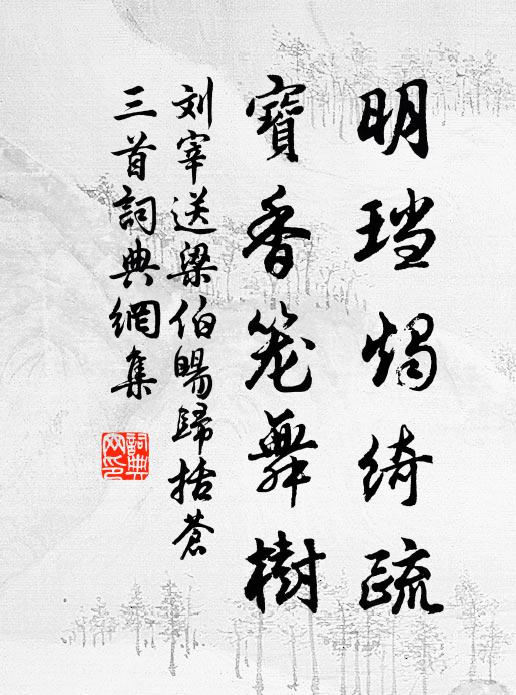 明珰烛绮疏
寶香笼舞樹
刘宰送梁伯暘歸括蒼
三首詞典網集
詞典网印